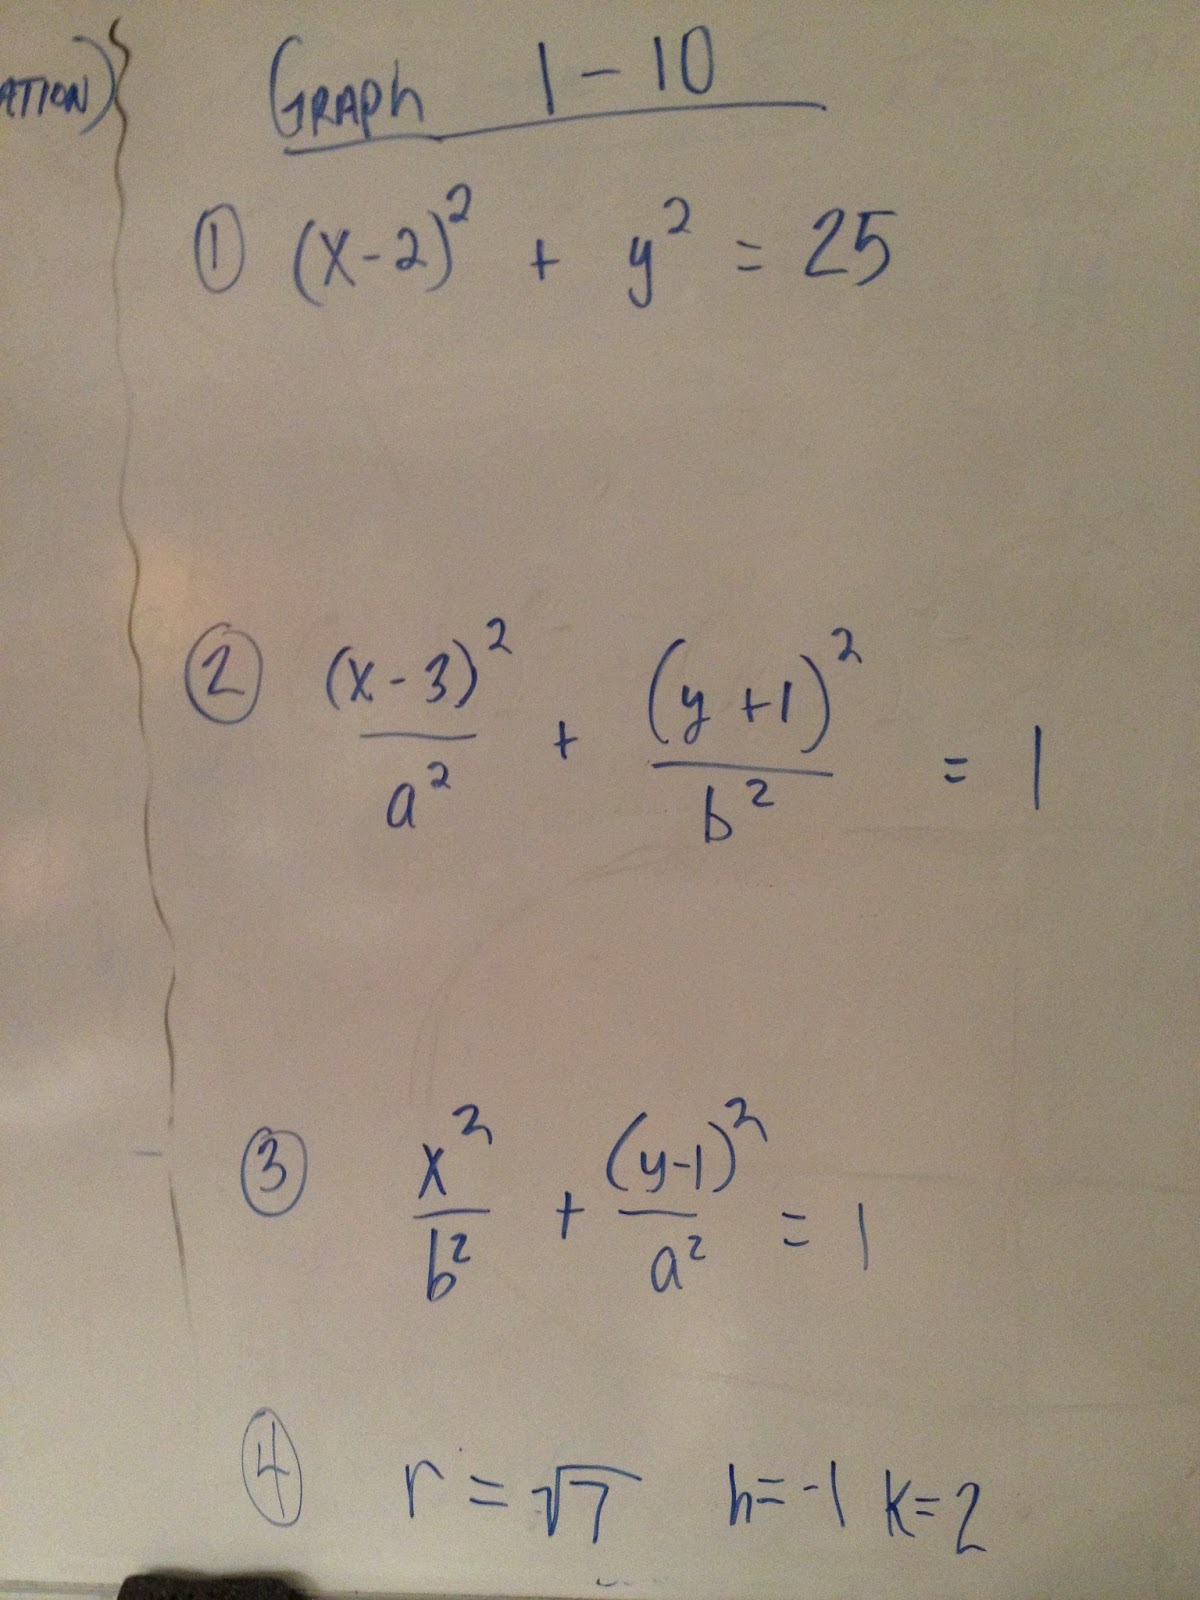 ATION)
GRAPh 1-10
① (x-2)² + y² = 25
② (x-3)²/a² + (y+1)²/b² = 1
③ x²/b² + (y-1)²/a² = 1
④ r = √7 h=-1 k=2